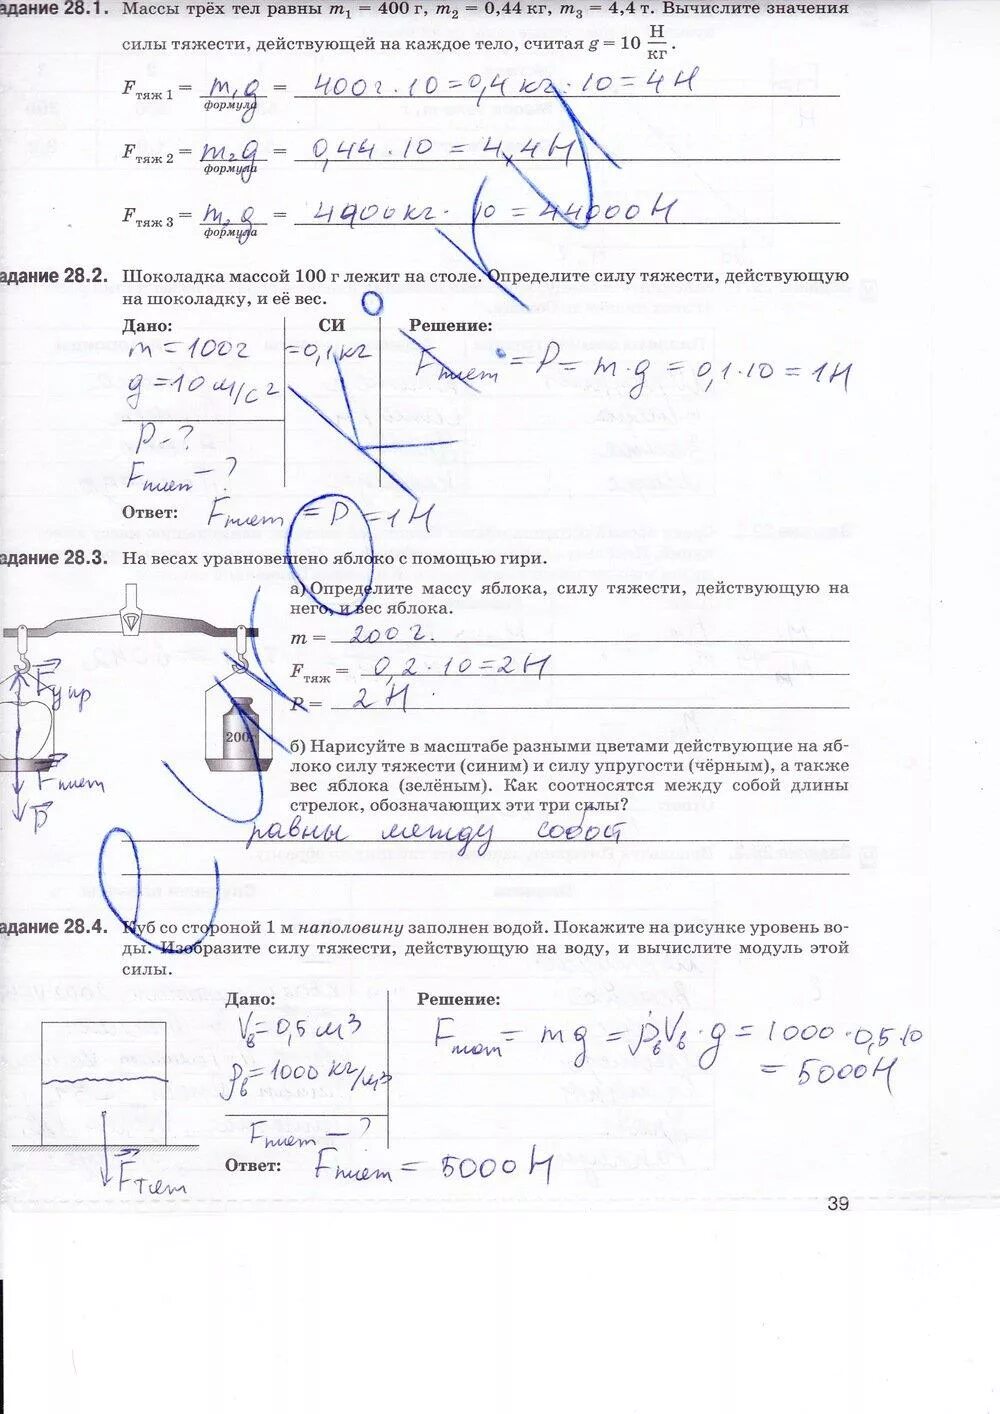 адание 28.1. Массы трёх тел равны m₁ = 400 г, m₂ = 0,44 кг, m₃ = 4,4 т. Вычислите значения
силы тяжести, действующей на каждое тело, считая g = 10 Н/кг.
Fтяж 1 = m₁g = 400г · 10 = 0,4 кг · 10 = 4 Н
формула
Fтяж 2 = m₂g = 0,44 · 10 = 4,4 Н
формула
Fтяж 3 = m₃g = 4400 кг · 10 = 44000 Н
формула
адание 28.2. Шоколадка массой 100 г лежит на столе. Определите силу тяжести, действующую
на шоколадку, и её вес.
Дано: СИ Решение:
m = 100г = 0,1 кг Fтяж = P = m · g = 0,1 · 10 = 1 Н
g = 10 м/с²
P - ?
Fтяж - ?
Ответ: Fтяж = P = 1 Н
адание 28.3. На весах уравновешено яблоко с помощью гири.
а) Определите массу яблока, силу тяжести, действующую на
него, и вес яблока.
m = 200 г.
Fтяж = 0,2 · 10 = 2 Н
P = 2 Н
Fупр
200г
Fтяж
P
б) Нарисуйте в масштабе разными цветами действующие на яб-
локо силу тяжести (синим) и силу упругости (чёрным), а также
вес яблока (зелёным). Как соотносятся между собой длины
стрелок, обозначающих эти три силы?
равны между собой
адание 28.4. Куб со стороной 1 м наполовину заполнен водой. Покажите на рисунке уровень во-
ды. Изобразите силу тяжести, действующую на воду, и вычислите модуль этой
силы.
Дано: Решение:
Vв = 0,5 м³ Fтяж = mg = ρвVв · g = 1000 · 0,5 · 10
ρв = 1000 кг/м³ = 5000 Н
Fтяж - ?
Fтяж
Ответ: Fтяж = 5000 Н
39